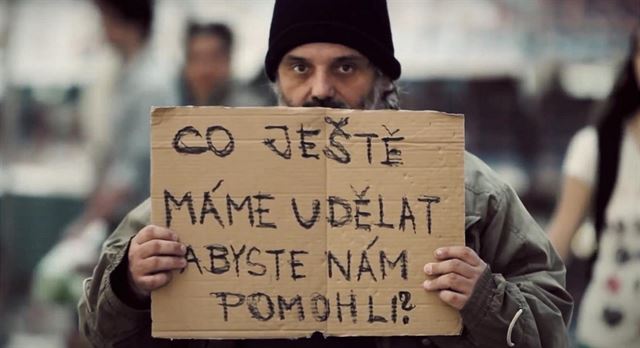 CO JEŠTĚ
MÁME UDĚLAT
ABYSTE NÁM
POMOHLI?